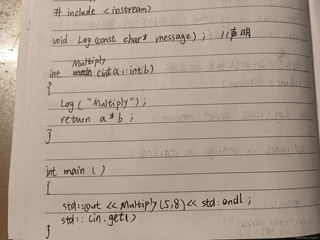 # include <iostream>
void Log(const char* message); //声明
Multiply
int main (int a, int b)
{
Log ("Multiply");
return a*b;
}
int main ()
{
std::cout << Multiply(5,8) << std::endl;
std::cin.get()
}